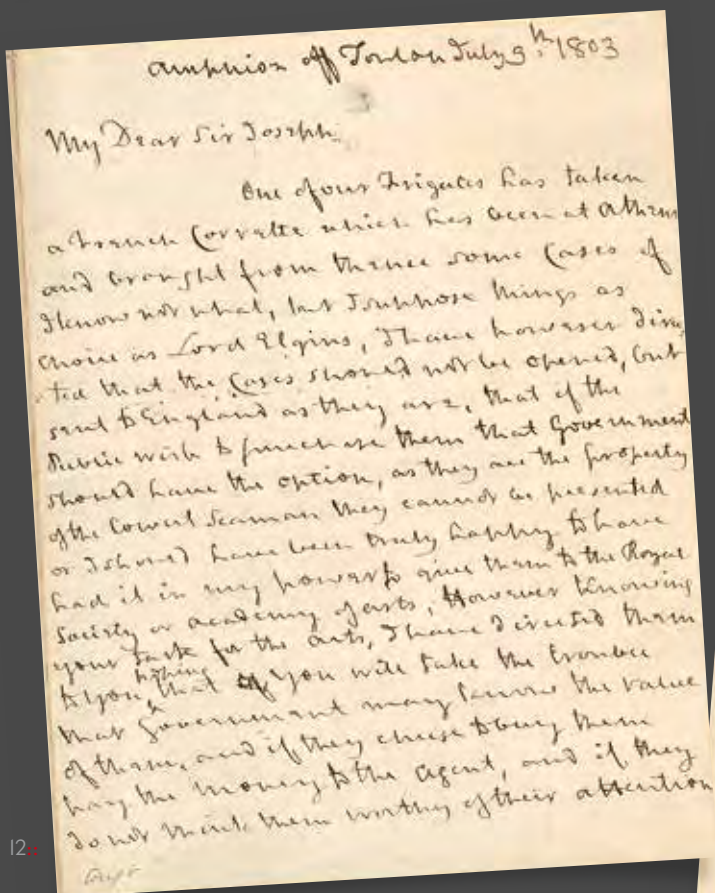 Amphion off Toulon July 9th: 1803
My Dear Sir Joseph
One of our Frigates has taken
a French Corvette which has been at Athens
and brought from thence some Cases of
I know not what, but I suppose things as
choice as Lord Elgins, I have however direc
ted that the Cases should not be opened, but
sent to England as they are, that if the
Public wish to purchase them that Government
should have the option, as they are the property
of the lowest Seaman they cannot be presented
or I should have been truly happy to have
had it in my power to give them to the Royal
Society or academy of arts, However knowing
your taste for the arts, I have directed them
to you hoping that you will take the trouble
that Government may know the value
of them, and if they chuse to buy them
pay the money to the agent, and if they
do not think them worthy of their attention
12::